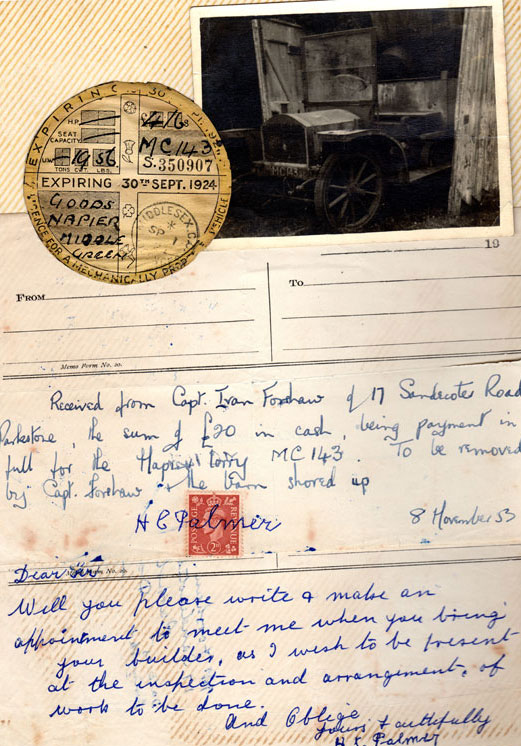 EXPIRING 30TH SEPT. 1924
H.P.
SEAT CAPACITY
U.W. - 19 56
TONS CWT. LBS.
£4/6
MC 143
S. 350907
EXPIRING 30TH SEPT. 1924
GOODS
NAPIER
MIDDLE
GREEN
MIDDLESEX C.C.
SP 1
LICENCE FOR A MECHANICALLY PROPELLED VEHICLE
MC143
19
FROM
To
Memo Form No. 10.
Received from Capt. Ivan Forshaw of 17 Sandecotes Road
Parkstone, the sum of £20 in cash, being payment in
full for the Napier lorry MC 143. To be removed
by Capt. Forshaw & the barn shored up
H C Palmer
8 November 53
POSTAGE REVENUE
2D
Dear Sir
Will you please write & make an
appointment to meet me when you bring
your builder, as I wish to be present
at the inspection and arrangement, of
work to be done.
And Oblige
Yours faithfully
H C Palmer